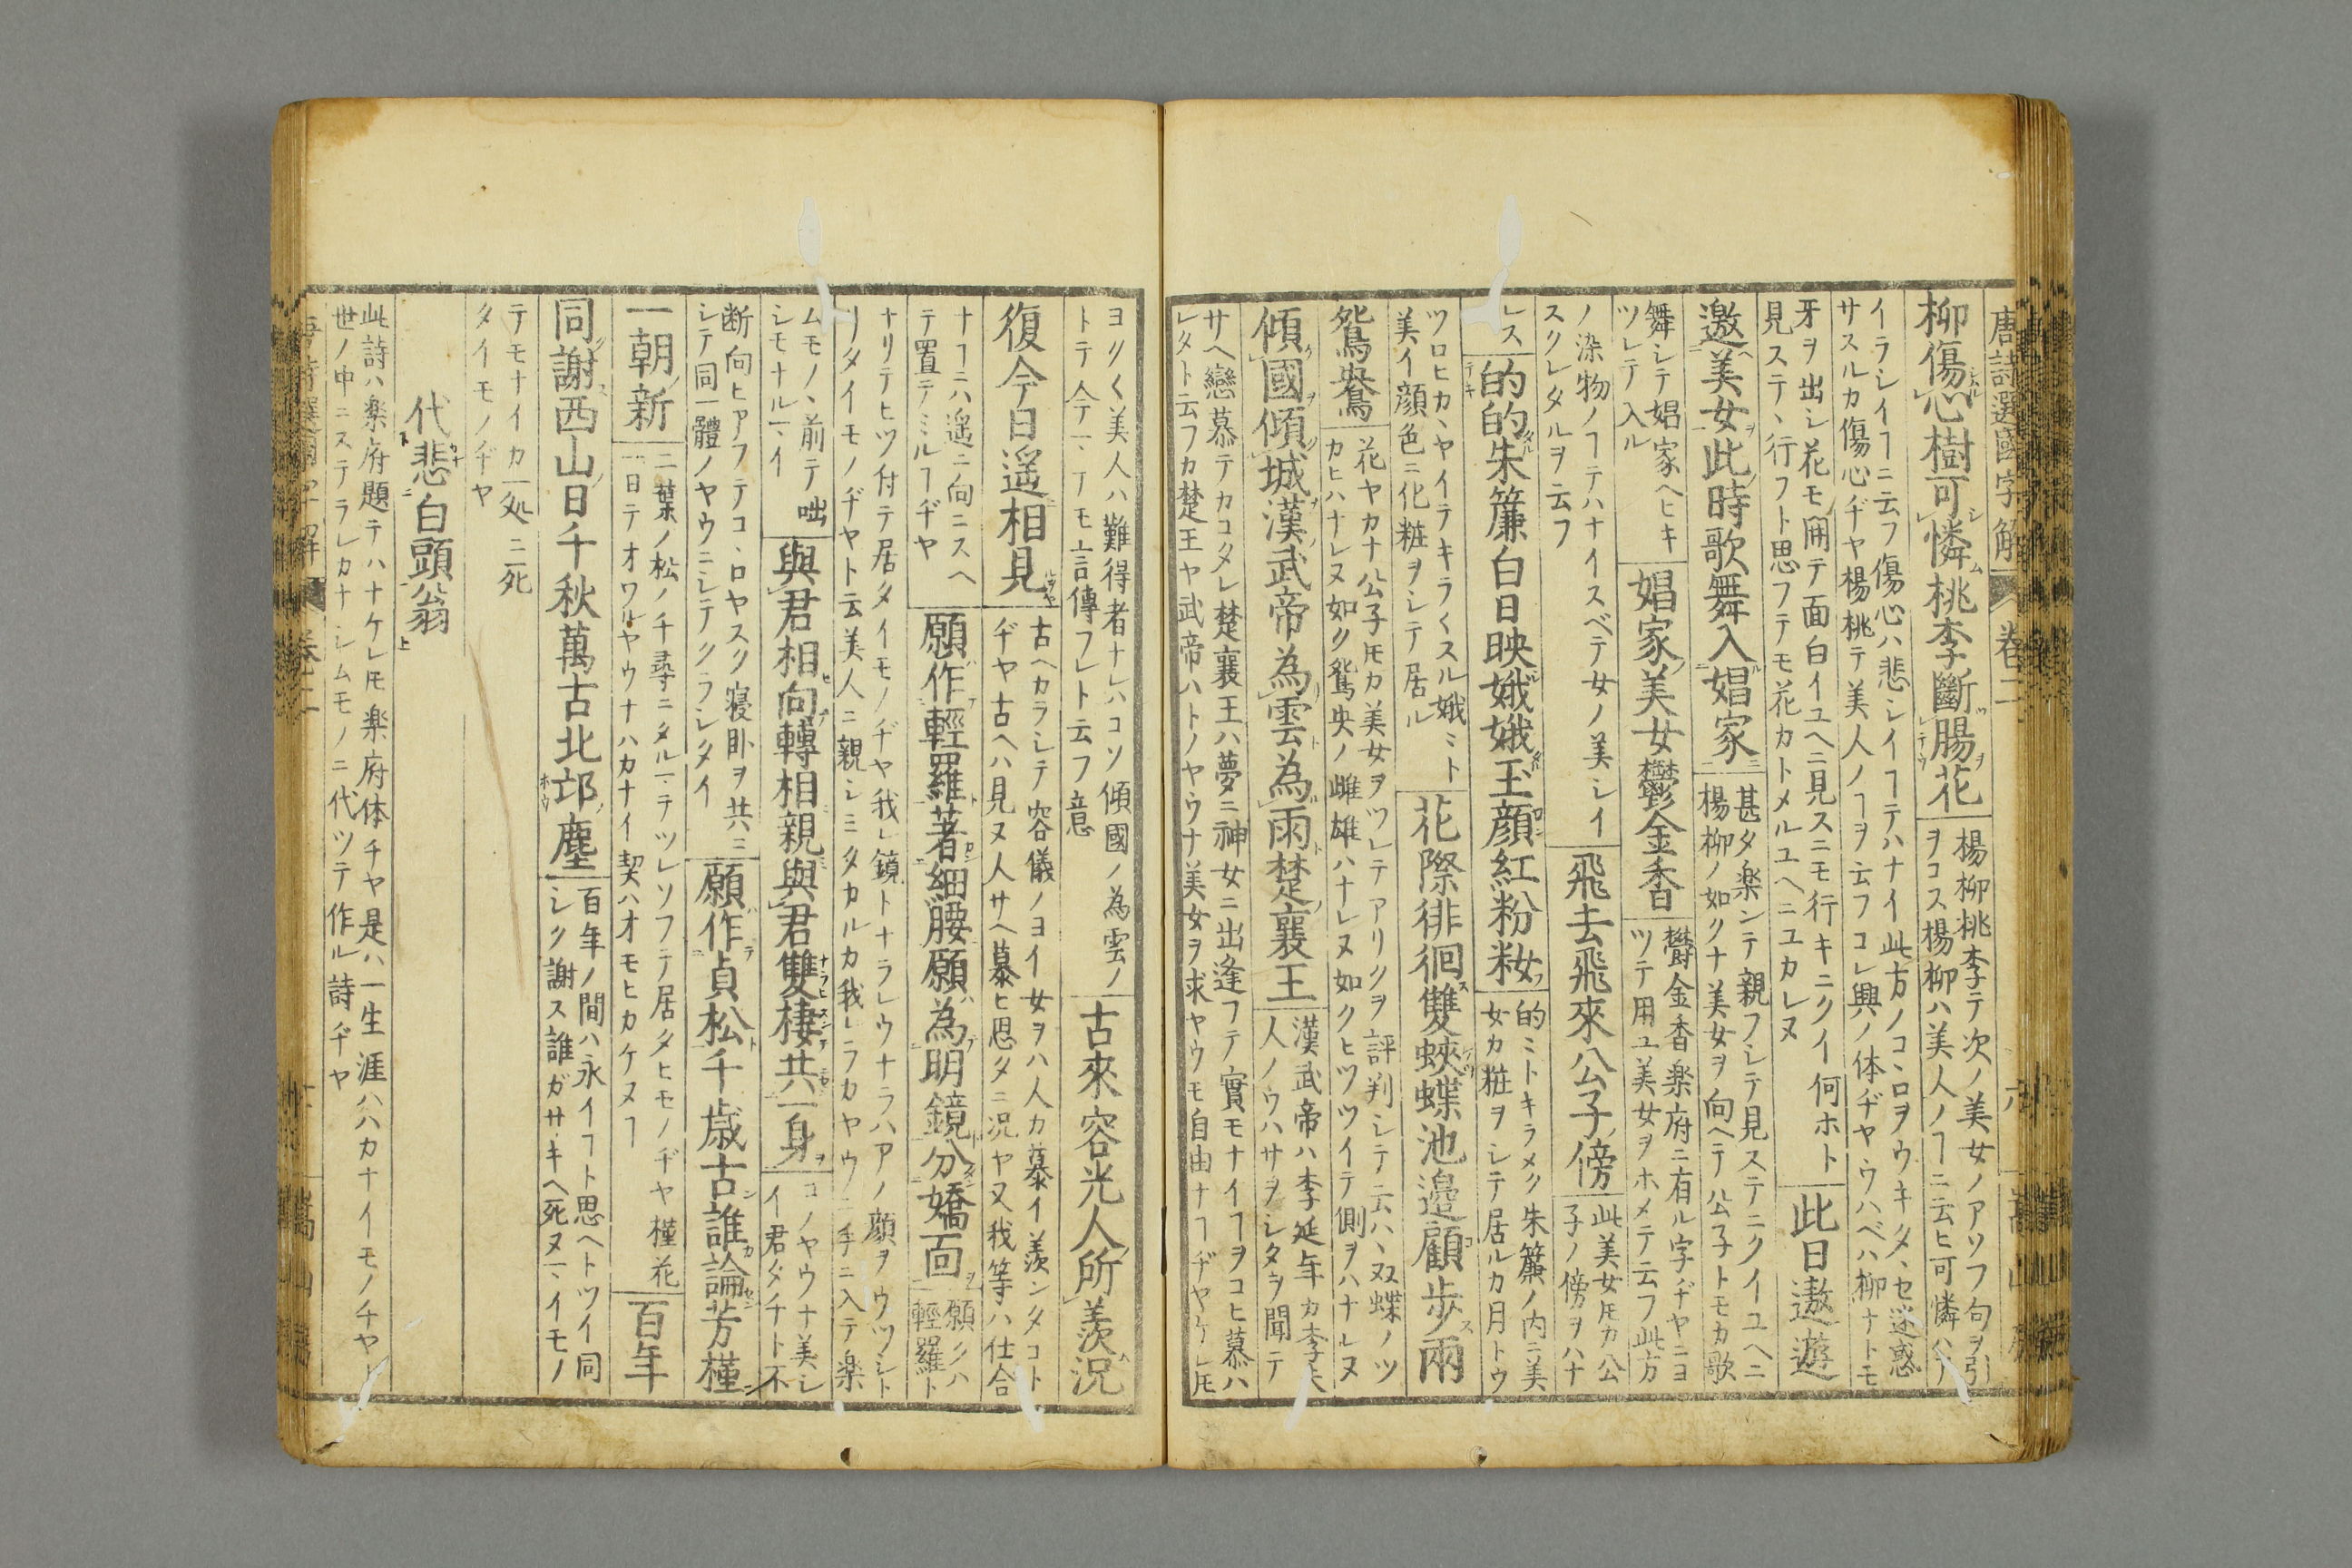 唐詩選國字解 卷二
柳傷心樹可憐桃李斷腸花
楊柳桃李テ次ノ美女ノアソフ句ヲ引
ヲコス楊柳ハ美人ノヿニ云ヒ可憐ハ
イラシイヿニ云フ傷心ハ悲シイヿテハナイ此方ノコヽロヲウキタヽセ迷惑
サスルカ傷心ヂヤ楊桃テ美人ノヿヲ云フコレ興ノ体ヂヤウハベハ柳ナトモ
牙ヲ出シ花モ開テ面白イユヘニ見スニモ行キニクイ何ホト
見ステヽ行フト思フテモ花カトメルユヘニユカレヌ
此日遨遊
邀美女此時歌舞入娼家
甚タ楽ンテ親フシテ見ステニクイユヘニ
楊柳ノ如クナ美女ヲ向ヘテ公子トモカ歌
舞シテ娼家ヘヒキ
ツレテ入ル
娼家美女鬱金香
欝金香楽府ニ有ル字ヂヤニヨ
ツテ用ユ美女ヲホメテ云フ此方
ノ染物ノヿテハナイスベテ女ノ美シイ
スクレタルヲ云フ
飛去飛來公子傍
此美女𪜈カ公
子ノ傍ヲハナ
レス
的的朱簾白日映娥娥玉顔紅粉粧
的ミトキラメク朱簾ノ内ニ美
女カ粧ヲシテ居ルカ月トウ
ツロヒカヽヤイテキラくスル娥ミト
美イ顔色ニ化粧ヲシテ居ル
花際徘徊雙蛺蝶池邉顧歩兩
鴛鴦
花ヤカナ公子𪜈カ美女ヲツレテアリクヲ評判シテ云ハヽ双蝶ノツ
カヒハナレヌ如ク鴛央ノ雌雄ハナレヌ如クヒツツイテ側ヲハナルヌ
傾國傾城漢武帝為雲為雨楚襄王
漢武帝ハ李延年カ李夫
人ノウハサヲシタヲ聞テ
サヘ戀慕テカコタレ楚襄王ハ夢ニ神女ニ出逢フテ實モナイヿヲコヒ慕ハ
レタト云フカ楚王ヤ武帝ハトノヤウナ美女ヲ求ヤウモ自由ナヿヂヤケレ𪜈
ヨクく美人ハ難得者ナレハコソ傾國ノ為雲ノ
トテ今ニ言傳フレト云フ意
古來容光人所羨況
復今日遥相見
古ヘカラシテ容儀ノヨイ女ヲハ人カ慕イ羨ンタコト
ヂヤ古ヘハ見ヌ人サヘ慕ヒ思タニ況ヤ又我等ハ仕合
ナヿニハ遥ニ向ニスヘ
テ置テミルヿヂヤ
願作輕羅著細腰願為明鏡分嬌面
願クハ
輕羅ト
ナリテヒツ付テ居タイモノヂヤ我レ鏡トナラレウナラハアノ顔ヲウツシト
リタイモノヂヤト云美人ニ親シミタカルカ我レラカヤウニ手ニ入テ楽
ムモノヽ前テ咄
シモナルヽイ
與君相向轉相親與君雙棲共一身
コノヤウナ美シ
イ君ダチト不
断向ヒアフテコヽロヤスク寝卧ヲ共ニ
シテ同一體ノヤウニシテクラシタイ
願作貞松千歳古誰論芳槿
一朝新
二葉ノ松ノ千尋ニタルヽテツレソフテ居タヒモノヂヤ槿花
一日テオワルヤウナハカナイ契ハオモヒカケヌヿ
百年
同謝西山日千秋萬古北邙塵
百年ノ間ハ永イヿト思ヘトツイ同
シク謝ス誰ガサキヘ死ヌヽイモノ
テモナイカ一処ニ死
タイモノヂヤ
代悲白頭翁
此詩ハ楽府題テハナケレ𪜈楽府体チヤ是ハ一生涯ハハカナイモノチヤト
世ノ中ニステラレカナシムモノニ代ツテ作ル詩ヂヤ